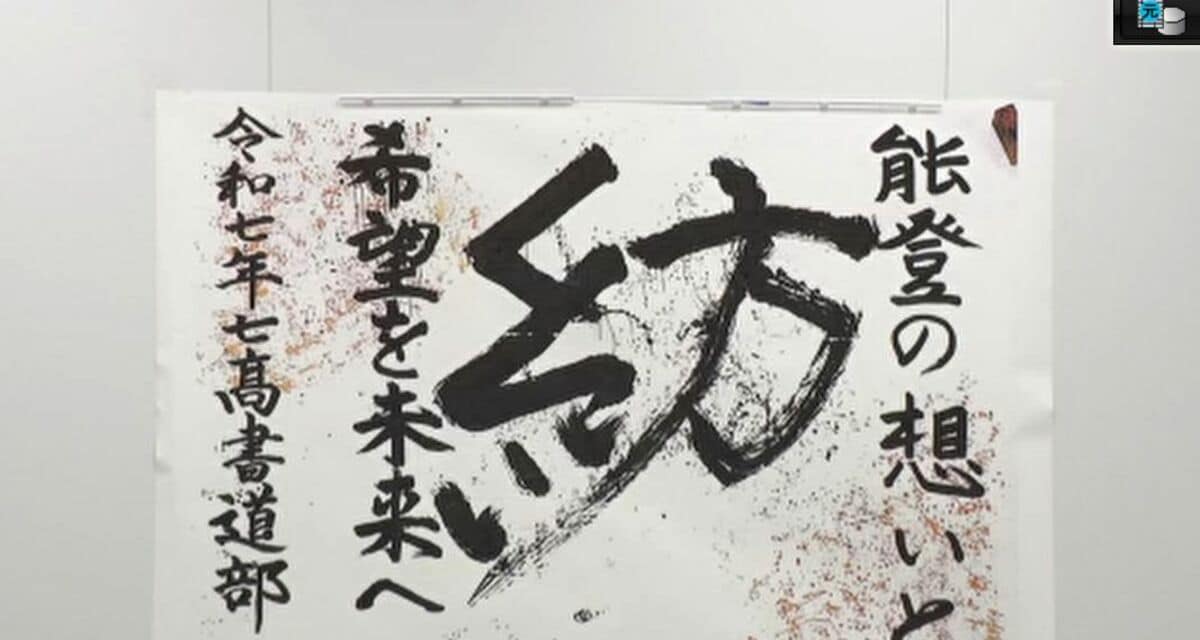 能登の想いと
紡
希望を未来へ
令和七年七高書道部
元